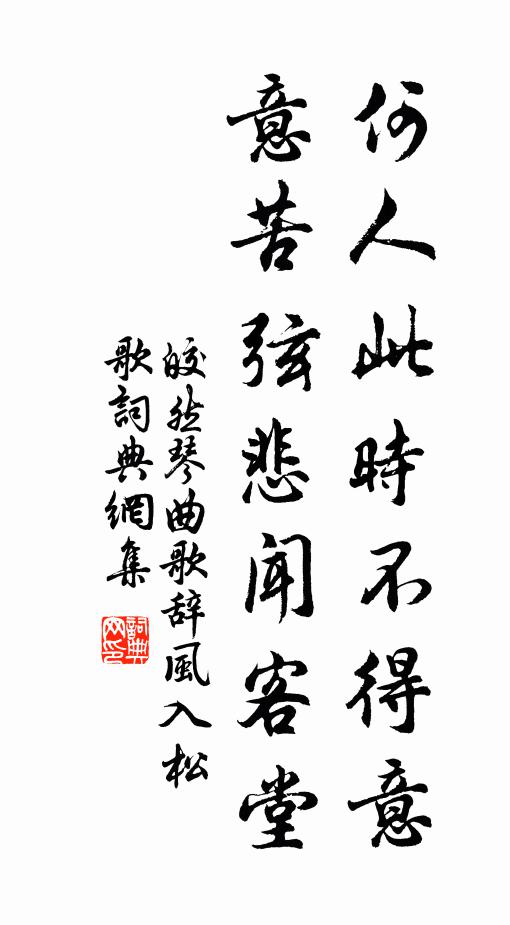 何人此時不得意
意苦弦悲聞客堂
皎然琴曲歌辞風入松
歌詞典網集
詞典网印